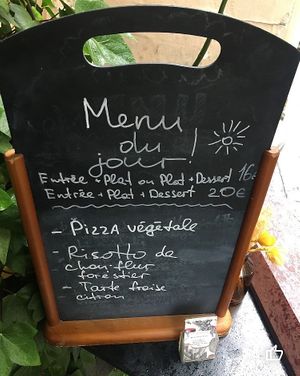 Menu
du
jour!
Entrée + Plat ou Plat + Dessert 16€
Entrée + Plat + Dessert 20€
- PIZZA végétale
- Risotto de
chou-fleur
forestier
- Tarte fraise
citron